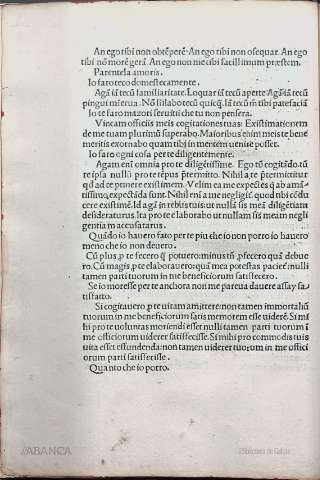 An ego tibi non obtẽperẽ· An ego tibi non obsequar. An ego
tibi nõ morẽ gerã. An ego non me tibi facillimum præstem.
Parentela amoris.
Io faro teco domestecamente.
Agã iã tecũ familiaritate. Loquar iã tecũ aperte
pingui minerua. Nõ
Io te faro mazori seruitii che tu non pensera.
Vincam officiis meis cogitationes tuas: Existimationem
de me tuam plurimũ superabo. Maioribus enim meis te bene
meritis exornabo quam tibi in mentem uenire posset.
Io faro ogni cosa per te diligentemente.
Agam eni omnia pro te diligentissime. Ego tũ cogitãdo, tũ
te ipsa nullũ pro te tẽpus prætermitto. Nihil a te prætermittitur
qd ad te pinere existimem. Velim ea me expectes
tissimo, expectãda sunt. Nihil eni a me negligit quod tibi cõdu
cere existimẽ. Id agã in rebis tuis ut nulla sis meã diligẽtiam
desideraturus. Ita pro te elaborabo ut nullam sis meam negli
gentiam accusaturus.
Quãdo io hauero fato per te piu che io non porro io hauero
meno che io non deuero.
Cũ plus, p te fecero potuero: minus tñ, pfecero quã debue
ro. Cũ magis, p te elaborauero: quã mea potestas paciet: nulli
tamen parti tuorum in me beneficiorum satisfecero.
Se io moresse per te anchora non me pareua dauere assay sa
tisfatto.
Si cogitauero, p te uitam amittere: non tamen immortaliũ
tuorum in me beneficiorum satis memorem esse uiderẽ. Si mi
hi pro te uoluntas moriendi esset nulli tamen parti tuorum ĩ
me officiorum uiderer satisfecisse. Si mihi pro commodis tuis
uita esset effundenda: non tamen uiderer tuorum in me offici
orum parti satisfecisse.
Quanto che io porro.
ABANCA
Biblioteca de Galicia